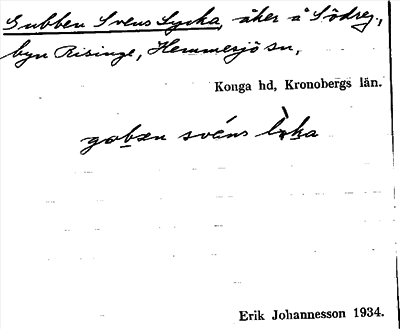 Gubben Svens Lycka, åker å Södreg.,
byn Risinge, Hemmesjö sn,
Konga hd, Kronobergs län.
gobæn sväns lÿka
Erik Johannesson 1934.